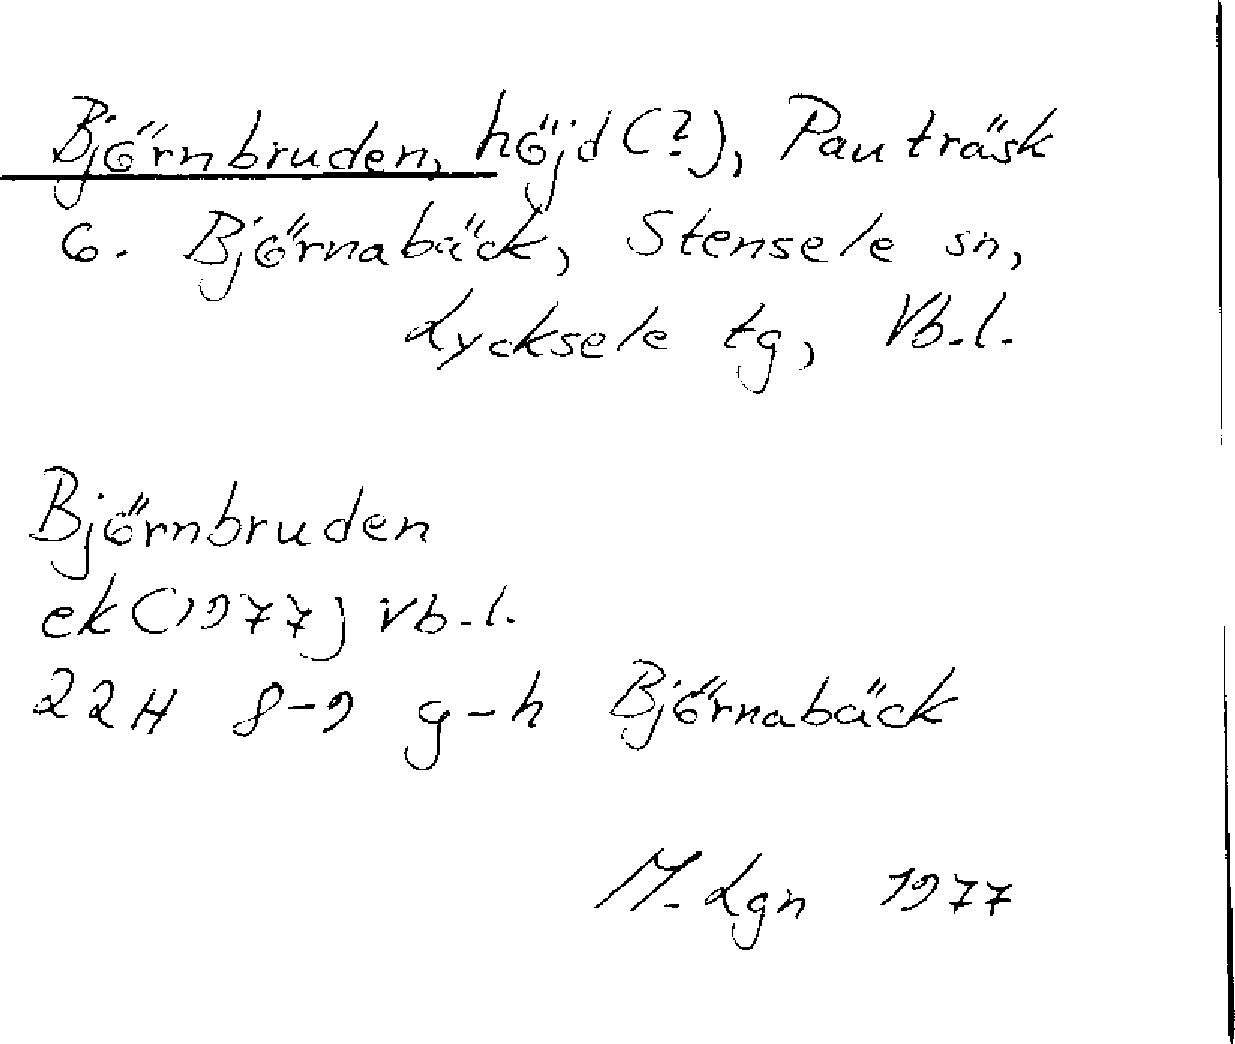 Björnbruden, höjd (?), Pauträsk
6. Björnabäck, Stensele sn,
Lycksele tg, Vb.l.
Björnbruden
ek (1977) Vb.l.
22H 8-9 g-h Björnabäck
M. Lgn 1977